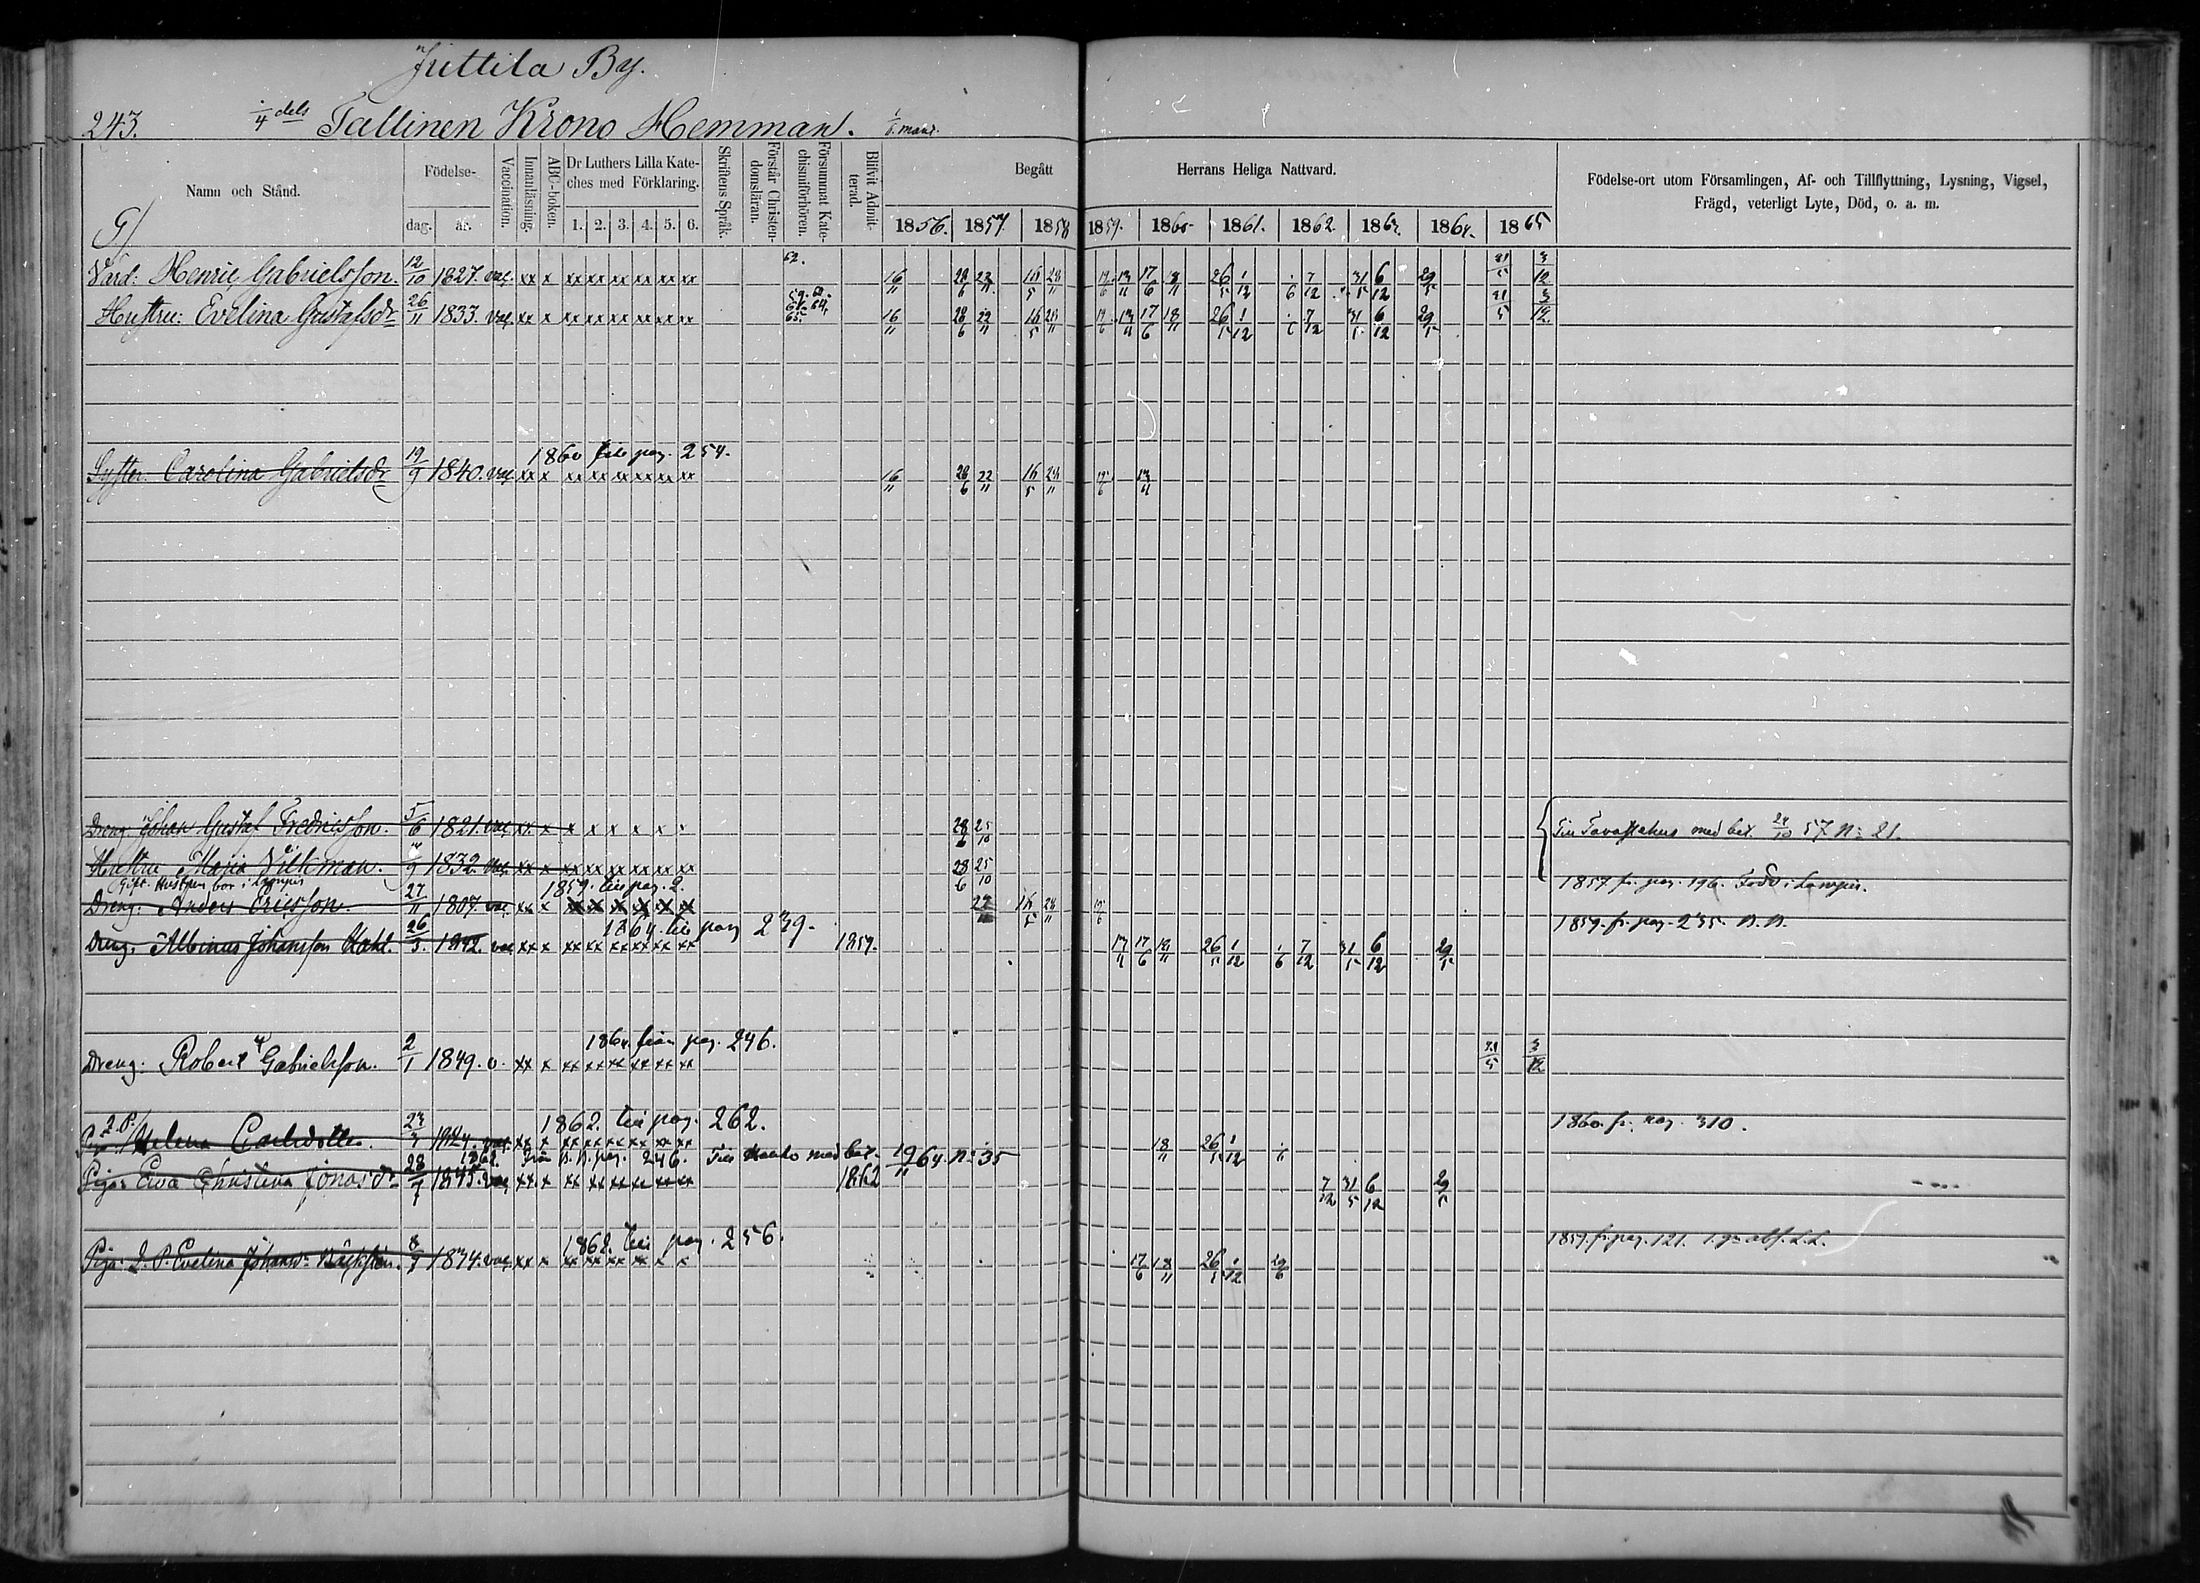 Juttila By.
243. 1/4 dels Tallinen Krono Hemman. 1/6 mant.
Namn och Stånd. Födelse- dag. år. Vaccination. Innanläsning. ABC-boken. Dr Luthers Lilla Kateches med Förklaring. 1. 2. 3. 4. 5. 6. Skriftens Språk. Förstår Christendomsläran. Försummat Katechismiförhören. Blifvit Admitterad. Begått Herrans Heliga Nattvard. 1856. 1857. 1858 1859. 1860 1861. 1862. 1863. 1864. 1865 Födelse-ort utom Församlingen, Af- och Tillflyttning, Lysning, Vigsel, Frägd, veterligt Lyte, Död, o. a. m.
G/
Värd: Henric Gabrielsson. 12/10 1827. vac. xx x xx xx xx xx xx xx 62. 16/11 28/6 22/11 16/5 28/11 19/6 13/11 17/6 18/11 26/5 1/12 1/6 7/12 31/5 6/12 29/5 21/5 3/12
Hustru: Evelina Gustafsdr 26/11 1833. vac. xx x xx xx xx xx xx xx 16/11 28/6 22/11 16/5 28/11 19/6 13/11 17/6 18/11 26/5 1/12 1/6 7/12 31/5 6/12 29/5 21/5 3/12
1860 till pag. 254.
Syster: Carolina Gabrielsdr 19/9 1840. vac. xx x xx xx xx xx xx xx 16/11 28/6 22/11 16/5 28/11 19/6 13/11
Dreng: Johan Gustaf Fredricsson. 5/6 1821. vac. xx x x x x x x x 28/6 25/10 Till Tavastehus med bet. 24/10 57 N: 21.
Hustru Maria Vilkman. 1832. vac. xx x xx xx xx xx xx xx 28/6 25/10
Gift. Hustrun bor i Loppis 1859. till pag. 2. 1857 fr. pag. 196. Född i Lampis.
Dreng: Anders Ericsson. 27/11 1807. vac. xx x 22/11 16/5 28/11 19/6
1864. till pag 239. 1859. fr. pag. 235.
Dreng. Albinus Johansson 26/3. 1842. vac xx x xx xx xx xx xx xx 1859. 13/11 17/6 18/11 26/5 1/12 1/6 7/12 31/5 6/12 29/5
1864. från pag. 246.
Dreng: Robert Gabrielsson. 2/1 1849. v. xx x xx xx xx xx xx xx 21/5 3/12
2.P. 1862. till pag. 262. 1860. fr. pag. 310.
Helena Carlsdotter. 1824. vac xx x xx xx xx xx xx xx 18/11 26/5 1/12
1862. från pag. 246. Till med bet. 19/11 64 N: 35
Piga: Eva Christina Jonasdr 28/7 1845. vac xx x xx xx xx xx xx xx 1862 7/12 31/5 6/12 29/5
1862. till pag. 256. 1859. fr. pag. 121.
Piga: 2.P. Evelina Johansdr 8/7 1834. vac xx x xx xx xx xx x x 17/6 18/11 26/5 1/12 29/6